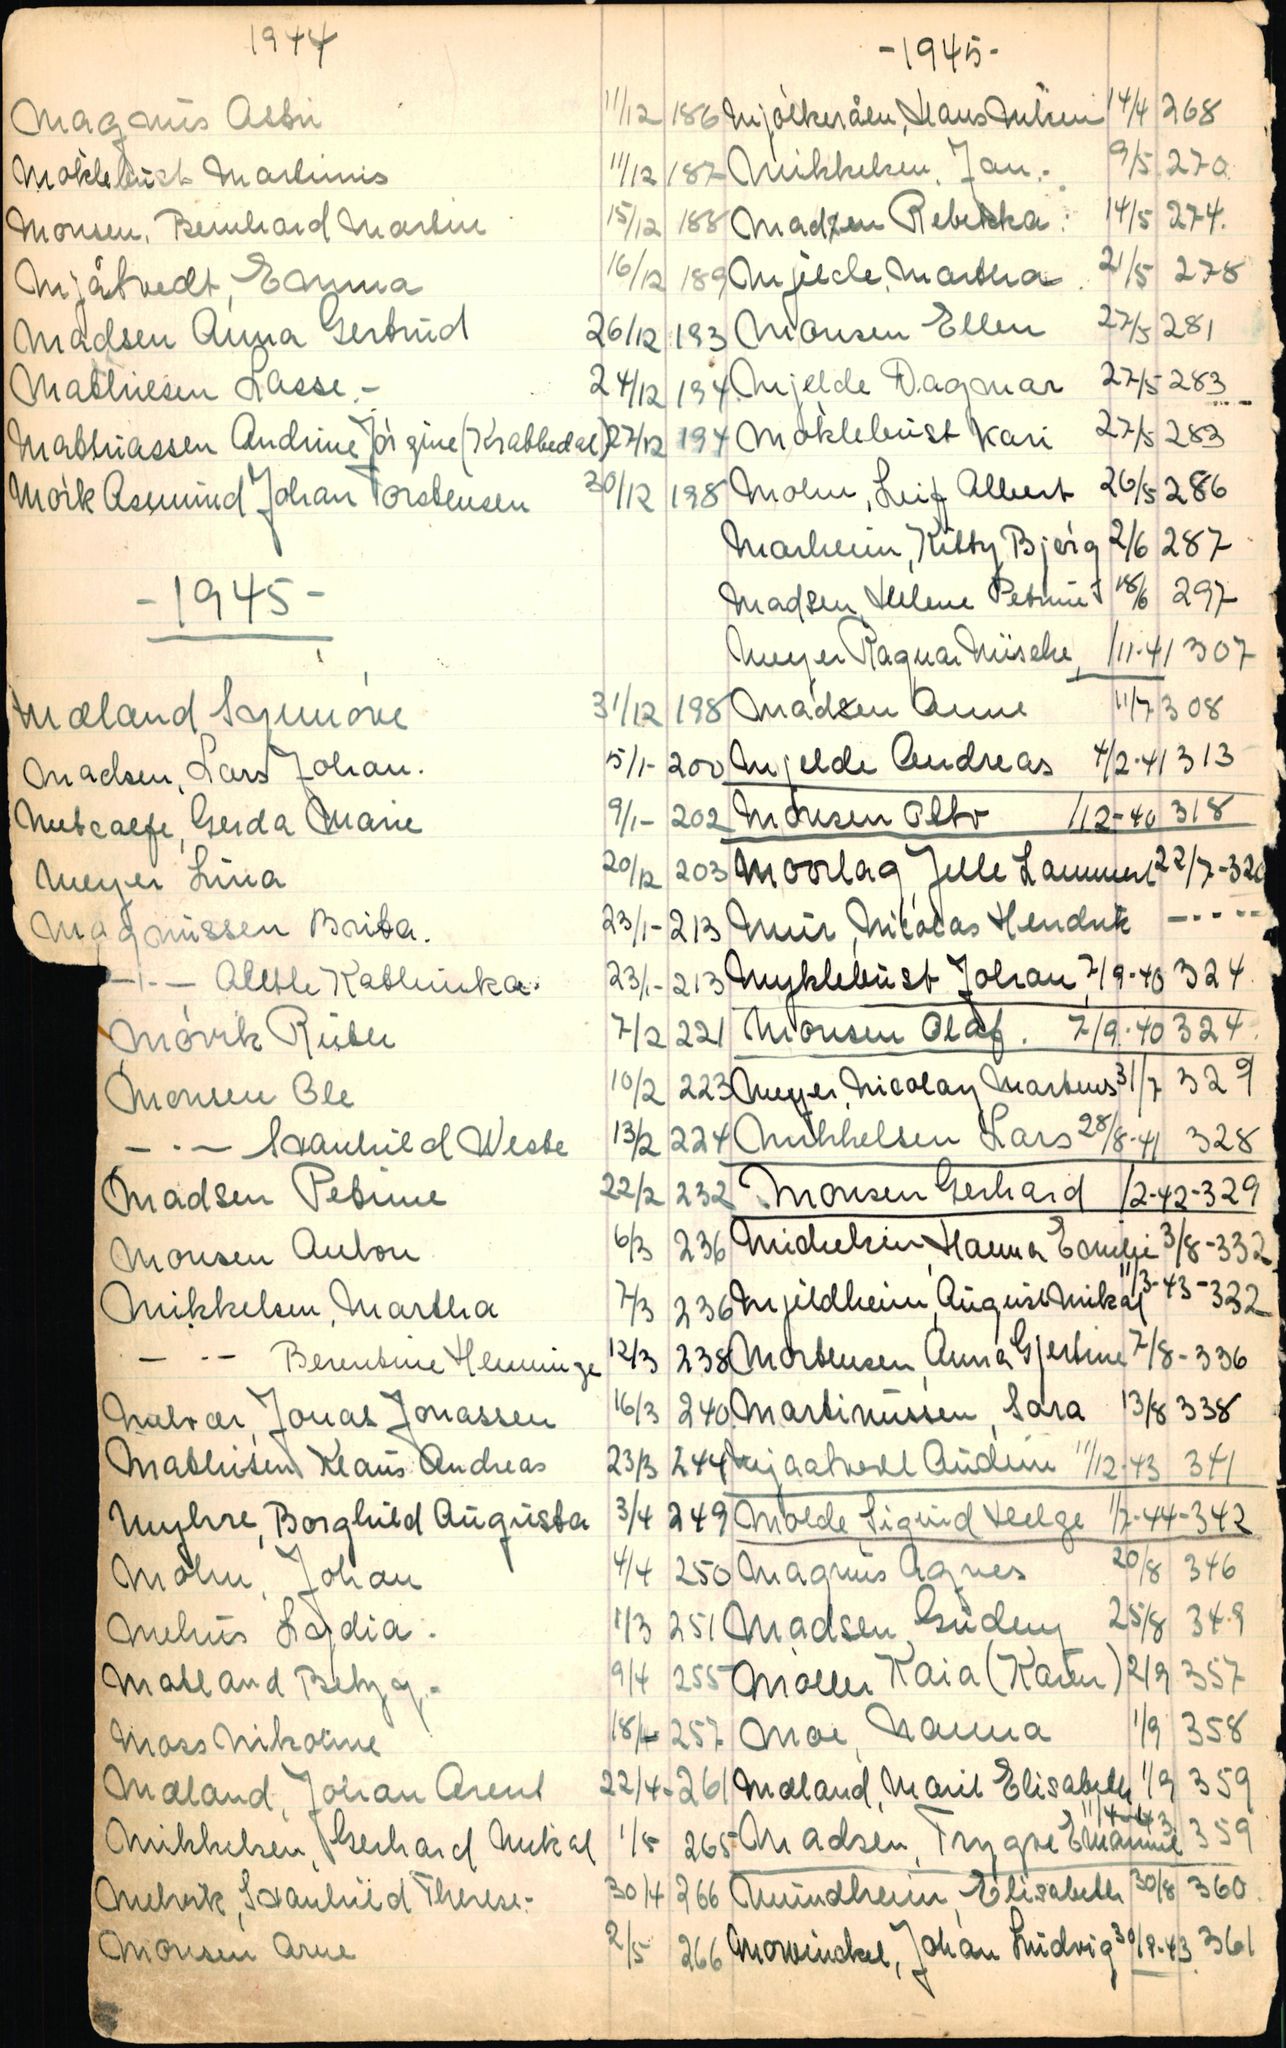 1944
Magnus Astri 11/12 186
Møklebust Martinus 11/12 187
Monsen, Bernhard Martin 15/12 188
Mjåtvedt, Emma 16/12 189
Madsen Anna Gertrud 26/12 193
Mathiesen Lasse.- 24/12 194
Mathiassen Andrine Jørgine (Krabbedal) 27/12 194
Mørk Asmund Johan Torstensen 30/12 198
-1945-
Mæland Synnøve 31/12 198
Madsen, Lars Johan. 5/1- 200
Metcalfe, Gerda Marie 9/1- 202
Meyer Lina 20/12 203
Magnussen Brita. 23/1- 213
-·- Alette Kathinka. 23/1- 213
Mørvik Ruter 7/2 221
Monsen Ole 10/2 223
-·- Svanhild Weste 13/2 224
Madsen Petrine 22/2 232
Monsen Anton 6/3 236
Mikkelsen, Martha 7/3 236
- ·- Berentine Henninge 12/3 238
Jonas Jonassen 16/3 240
Mathisen Klaus Andreas 23/3 244
Myhre, Borghild Augusta 3/4 249
Møhn, Johan 4/4 250
Mehus Lydia. 1/3 251
Matland Betzy.- 9/4 255
Moss Nikoline 18/4 257
Mæland, Johan Arent 22/4- 261
Mikkelsen, Gerhard Mikal 1/5 265
Melvik, Svanhild Therese.- 30/4 266
Monsen Arne 2/5 266
-1945-
Mjølkeråen, Hans 14/4 268
Mikkelsen, Jan. 9/5 270
Madzen Rebekka. 14/5 274.
Mjelde, Martha 21/5 278
Monsen Ellen 27/5 281
Mjelde Dagmar 27/5 283
Møklebust Kari 27/5 283
Mohn, Leif Albert 26/5 286
Marheim, Kitty Bjørg 2/6 287
Madsen, Helene Petrine 18/6 297
Meyer Ragnar Müsche, 1/11-41 307
Madsen Anne 11/7 308
Mjelde Andreas 4/2-41 313
Monsen Otto 1/12-40 318
Moorlag Jelle Lammert 22/7-320
Muir, Nicolas Hendrik - - - - -
Myklebust Johan 7/9-40 324
Monsen Olaf. 7/9-40 324.
Meyer, Nicolay Martens 31/7 329
Mikkelsen Lars 28/8-41 328
Monsen Gerhard 1/2-42-329
Michelsen, Hanna Emilie 3/8-332
Mjeldheim, August Mikal 11/3-43-332
Mortensen, Anna Gjertine 7/8-336
Martinussen, Sara 13/8 338
Mjaatvedt Audun 11/12-43 341
Molde Sigurd Helge 1/7-44-342
Magnus Agnes 20/8 346
Madsen Gudny 25/8 349
Møller Kaia (Karen) 2/9 357
Moe, Nanna 1/9 358
Mæland, Marit Elisabeth 1/9 359
Madsen, Trygve Emanuel 11/4-43 359
Mundheim, Elisabeth 30/8 360.
Mowinckel, Johan Ludvig 30/9-43 361